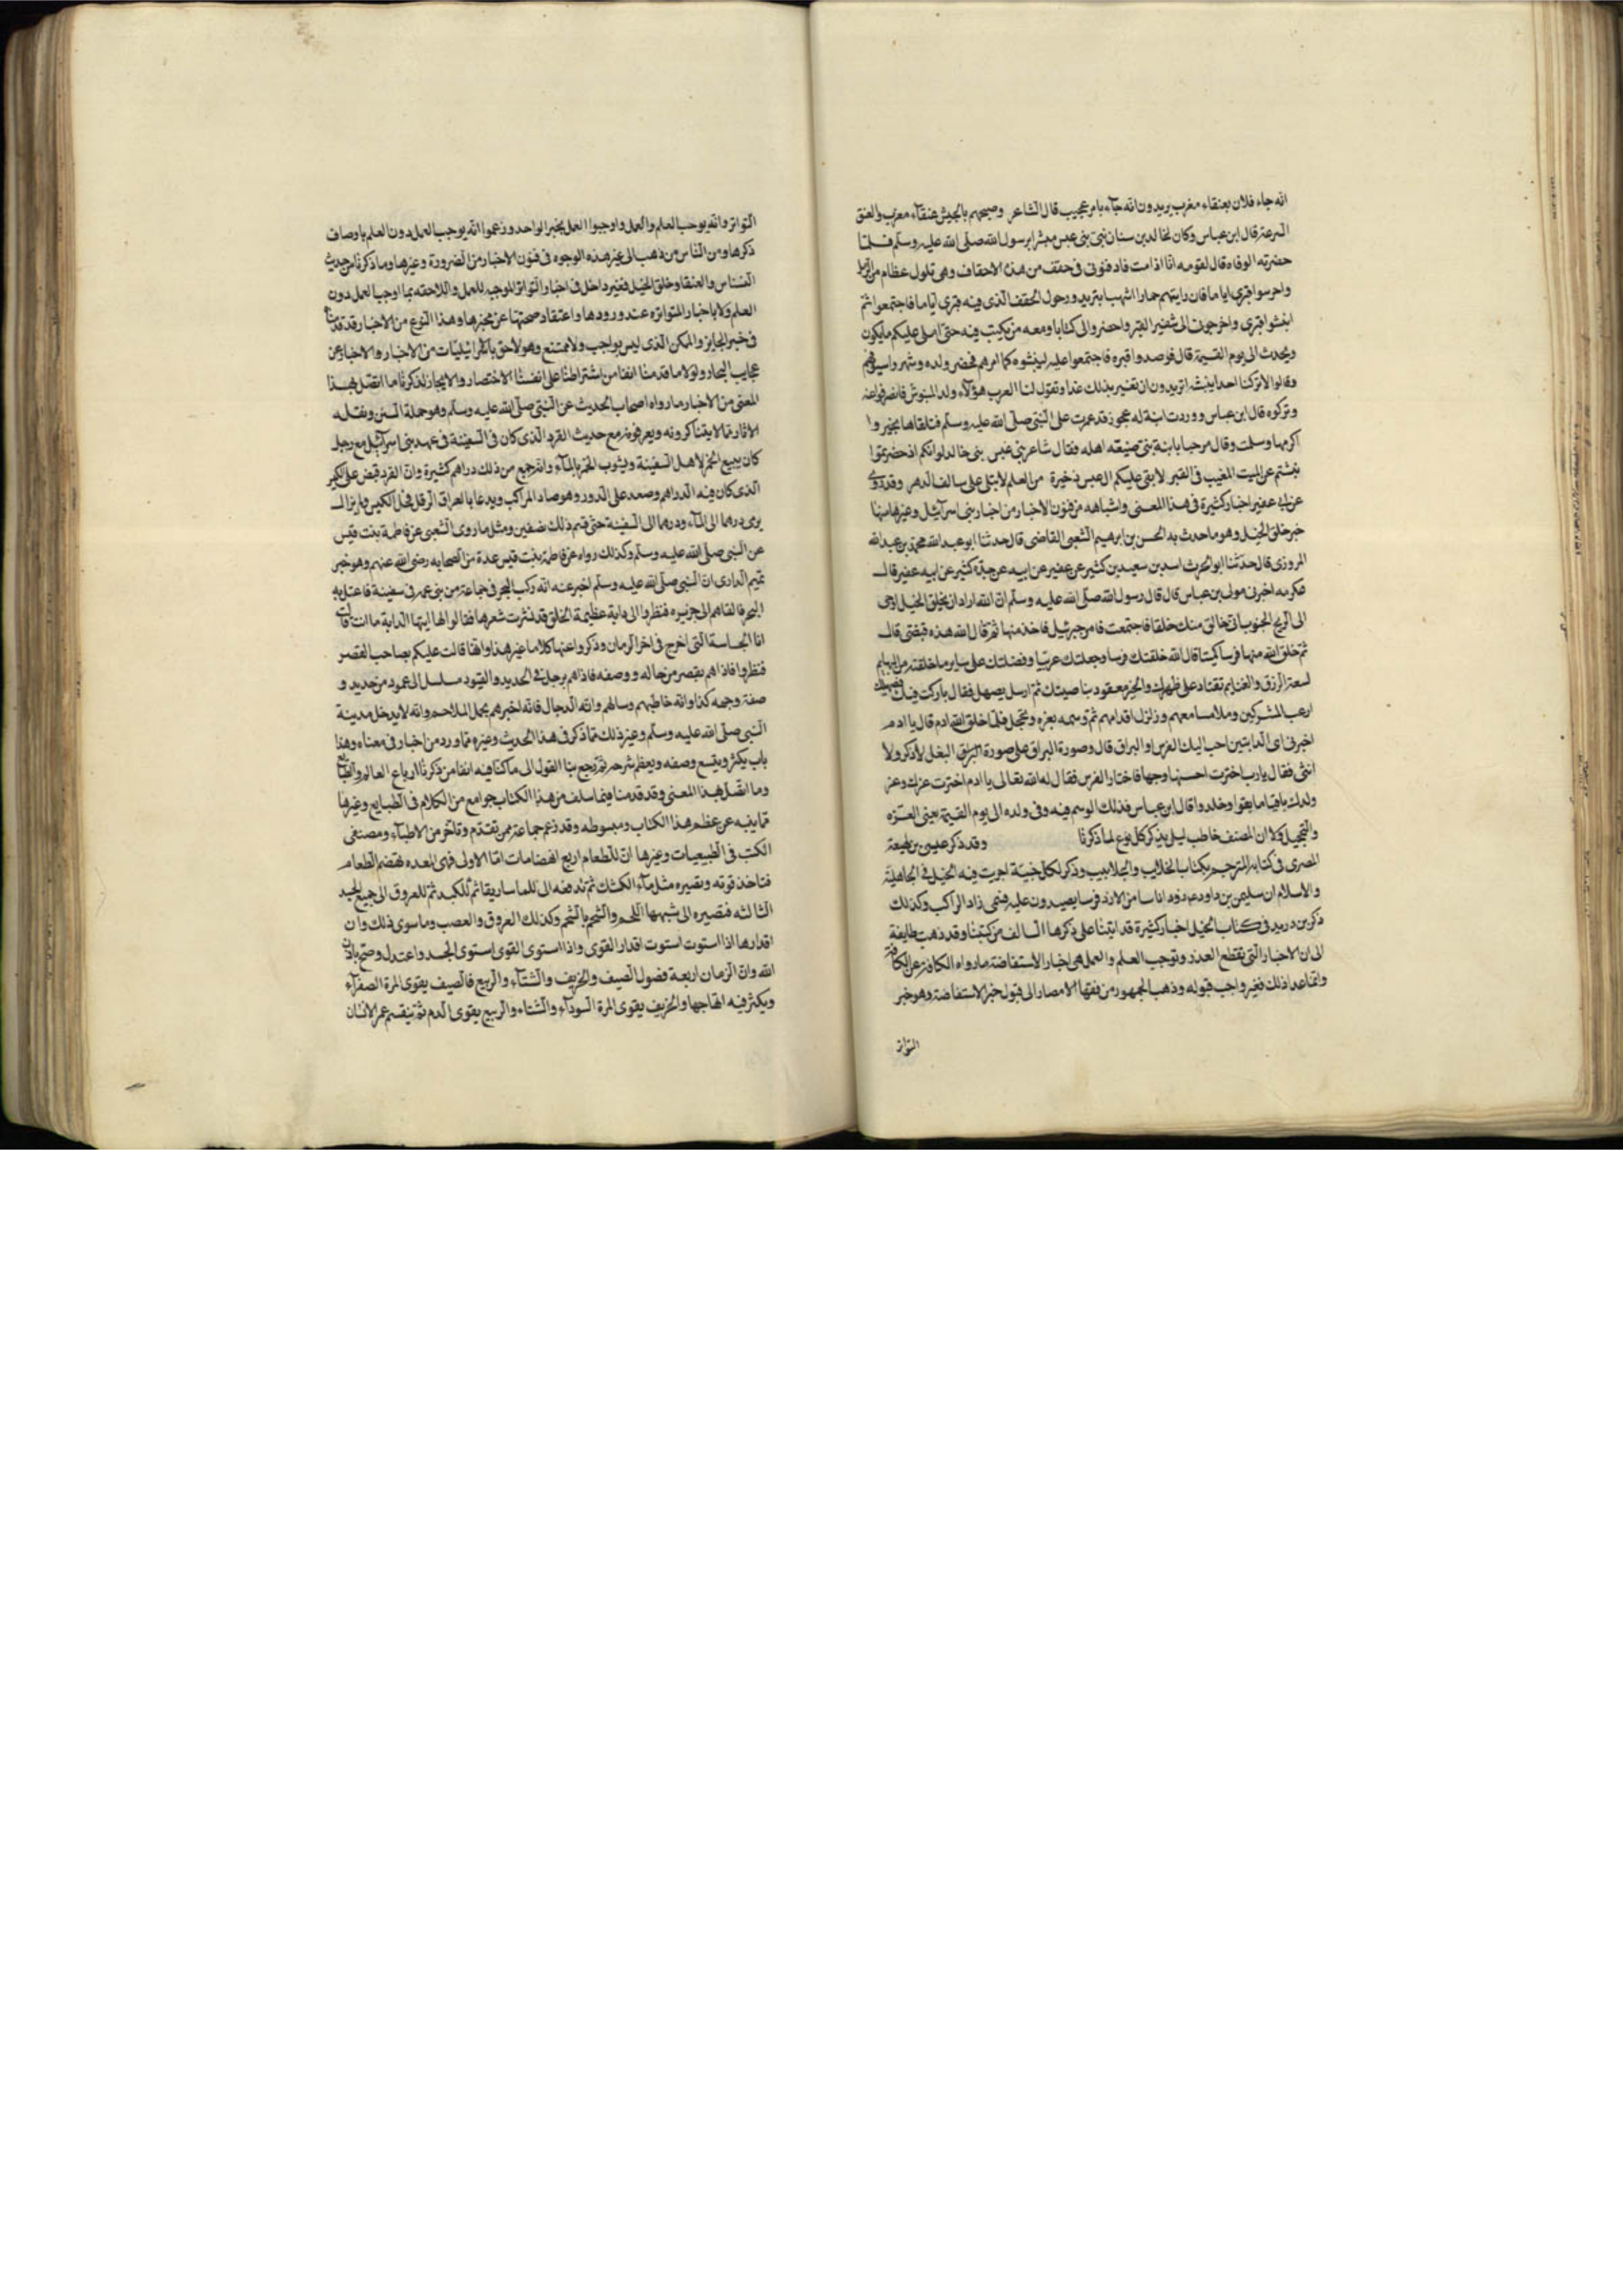 انه جاء فلان بعنقاء مغرب يريدون انه جاء بامر عجيب قال الشاعر وصبحهم بالجيش عنقاء مغرب والعنق
السرعة قال ابن عباس وكان خالد بن سنان نبى بنى عبس مبشرا برسول الله صلى الله عليه وسلم فلما
حضرته الوفاه قال لقومه اذا انا مت فادفنونى فى حقف من هذه الاحقاف وهى تلول عظام من الرمل
واحرسوا قبرى اياما فان رايتم حمارا اشهب ابتر يدور حول الحقف الذى فيه قبرى اياما فاجتمعوا ثم
انبشوا قبرى واخرجونى الى شفير القبر واحضروا لى كتابا ومعه من يكتب فيه حتى املى عليكم ما يكون
ويحدث الى يوم القيمة قال فرصدوا قبره فاجتمعوا عليه لينبشوه كما امرهم فحضر ولده وشهروا سيوفهم
وقالوا لا تركنا احدا ينبشه اتريدون ان نعير بذلك غدا وتقول لنا العرب هؤلاء ولد المنبوش فانصرفوا عنه
وتركوه قال ابن عباس ووردت ابنة له عجوز قد عمرت على النبى صلى الله عليه وسلم فتلقاها بخير وا
كرمها وسلمت وقال مرحبا بابنة نبى ضيعه اهله فقال شاعر بنى عبس بنى خالد لو انكم اذ حضرتموا
نبشتم عن الميت المغيب فى القبر لابقى عليكم ال عبس ذخيرة من العلم لا تبلى على سالف الدهر وقد روى
عن ابن عفير اخبار كثيرة فى هذا المعنى واشباهه من فنون الاخبار من اخبار بنى اسرآئيل وغيرها منها
خبر خلق الخيل وهو ما حدث به الحسن بن ابرهيم الشعبى القاضى قال حدثنا ابو عبد الله محمد بن عبد الله
المروزى قال حدثنا ابو الحرث اسد بن سعيد بن كثير بن عفير عن ابيه عن جده كثير عن ابيه عفير قال
عكرمه اخبرنى مولى بن عباس قال قال رسول الله صلى الله عليه وسلم ان الله اراد ان يخلق الخيل اوحى
الى الريح الجنوب انى خالق منك خلقا فاجتمعت فامر جبرئيل فاخذ منها ثم قال الله هذه قبضتى قال
ثم خلق الله منها فرسا كميتا قال الله خلقتك فرسا وجعلتك عربيا وفضلتك على ساير ما خلقته من البهايم
لسعة الرزق والغنايم تقتاد على ظهرك والخير معقود بناصيتك ثم ارسل يصهل فقال باركت فيك فصهيلك
ارعب المشركين وملا مسامعهم وزلزل اقدامهم ثم وسمه بغره وتحجيل فلما خلق الله ادم قال يا ادم
اخبرنى اى الدابتين احب اليك الفرس او البراق قال وصورة البراق على صورة البغل لا ذكر ولا
انثى فقال يارب اخترت احسنها وجها فاختار الفرس فقال له الله تعالى يا ادم اخترت عزك وعز
ولدك باقيا ما بقوا وخلدوا قال ابن عباس فذلك الوسم فيه وفى ولده الى يوم القيمة يعنى الغره
والتحجيل ولا ان المصنف خاطب ليل يذكر كل نوع لما ذكرنا وقد ذكر عيسى بن لهيعة
المصرى فى كتابه المترجم بكتاب الخلايب والجلابيب وذكر لكل حلبة اجريت فيه الخيل فى الجاهلية
والاسلام ان سليمن بن داود عم زود اناسا من الازد فرسا يصيدون عليه فسمى زاد الراكب وكذلك
ذكر بن دريد فى كتاب الخيل اخبار كثيرة قد اتينا على ذكرها السالف من كتبنا وقد ذهبت طايفة
الى ان الاخبار التى تقطع العذر وتوجب العلم والعمل هى اخبار الاستفاضة ما رواه الكافة عن الكافة
وان ما عدا ذلك فغير واجب قبوله وذهب الجمهور من فقها الامصار الى قبول خبر الاستفاضة وهو خبر
التواتر
التواتر وانه يوجب العلم والعمل واوجبوا العمل بخبر الواحد وزعموا انه يوجب العمل دون العلم باوصاف
ذكرها ومن الناس من ذهب الى غير هذه الوجوه فى فنون الاخبار من الضرورة وغيرها وما ذكرنا من حديث
النسناس والعنقا وخلق الخيل فغير داخل فى اخبار التواتر الموجبه للعمل واللاحقه بما اوجب العمل دون
العلم ولا باخبار المتواتره عند ورودها واعتقاد صحتها عن مخبرها وهذا النوع من الاخبار قد قدمنا
فى خبر الجايز والممكن الذى ليس بواجب ولا ممتنع وهو لاحق بالاسرائيليات من الاخبار والاخبار عن
عجايب البحار ولولا ما قدمنا انفا من اشتراطنا على انفسنا الاختصار والايجاز لذكرنا ما اتصل بهذا
المعنى من الاخبار ما رواه اصحاب الحديث عن النبى صلى الله عليه وسلم وهو حملة السنن ونقلة
الاثار مما لا يتناكرونه ويعرفونه مع حديث القرد الذى كان فى السفينة فى عهد بنى اسرآئيل مع رجل
كان يبيع الخمر لاهل السفينة ويشوب الخمر بالمآء وانه جمع من ذلك دراهم كثيرة وان القرد قبض على الكيس
الذى كان فيه الدراهم وصعد على الدور وهو صاد المراكب ويدعا بالعراق الدقل فحل الكيس ولم يزال
يرمى درهما الى المآء ودرهما الى السفينة حتى قسم ذلك نصفين ومثل ما روى الشعبى عن فاطمة بنت قيس
عن النبى صلى الله عليه وسلم وكذلك رواه عن فاطمة بنت قيس عدة من الصحابه رضى الله عنهم وهو خبر
تميم الدارى ان النبى صلى الله عليه وسلم اخبر عنه انه ركب البحر فى جماعة من بنى عمه فى سفينة فاعتل به
البحر فالقاهم الى جزيره فنظروا الى دابة عظيمة الخلق قد نشرت شعرها فقالوا لها ايتها الدابة ما انت قالت
انا الجساسة التى اخرج فى اخر الزمان وذكروا عنها كلاما غير هذا وانها قالت عليكم بصاحب القصر
فنظروا فاذا هم بقصر من حاله ووصفه فاذا هم برجل فى الحديد والقيود مسلسل الى عمود من حديد و
صفة وجهه كذا وانه خاطبهم وسالهم وانه الدجال فانه اخبرهم بجمل الملاحم وانه لا يدخل مدينة
النبى صلى الله عليه وسلم وغير ذلك مما ذكر فى هذا الحديث وغيره مما ورد من اخبار فى معناه وهذا
باب يكثر ويتسع وصفه ويعظم شرحه ثم رجع بنا القول الى ما كنا فيه انفا من ذكرنا ارباع العالم والطبايع
وما اتصل بهذا المعنى وقد قدمنا فيما سلف من هذا الكتاب جوامع من الكلام فى الطبايع وغيرها
مما ينبه عن عظم هذا الكتاب ومبسوطه وقد زعم جماعة ممن تقدم وتاخر من الاطباء ومصنفى
الكتب فى الطبيعيات وغيرها ان للطعام اربع انهضامات اما الاولى فهى المعده تهضم الطعام
فتاخذ قوته وتصيره مثل مآء الكشك ثم تدفعه الى الماساريقا ثم للكبد ثم للعروق الى جميع الجسد
الثالثه فتصيره الى شبهها اللحم والشحم بالشحم وكذلك العروق والعصب وما سوى ذلك وان
اقدارها اذا استوت استوت اقدار القوى واذا استوى القوى استوى الجسد واعتدل وصح باذن
الله وان الزمان اربعة فصول الصيف والخريف والشتآء والربيع فالصيف يقوى المرة الصفرآء
ويكثر فيه اهتياجها والخريف يقوى المرة السودآء والشتاء والربيع يقوى الدم ثم ينقسم عمر الانسان